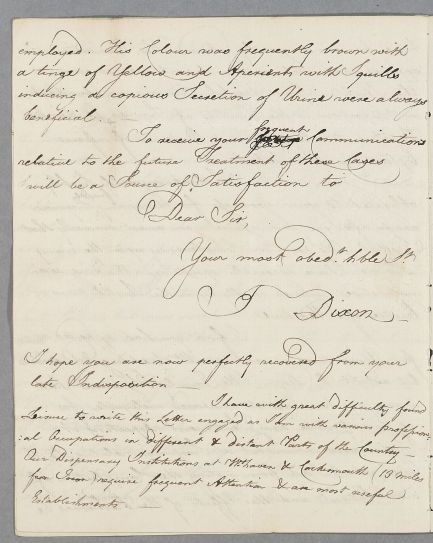 employed. His Colour was frequently brown with
a tinge of Yellow and Aperients with Squills
inducing a copious Secretion of Urine were always
beneficial —
To receive your frequent Communications
relative to the future Treatment of these Cases
will be a Source of Satisfaction to
Dear Sir,
Your most obedt. hble St.
J Dixon —
I hope you are now perfectly recovered from your
late Indisposition —
I have with great difficulty found
Leisure to write this Letter engaged as I am with various profession
:al Occupations in different & distant Parts of the Country —
Our Dispensary Institutions at Whaven & Cockermouth (13 miles
from Town) require frequent Attention & are most useful
Establishments. —